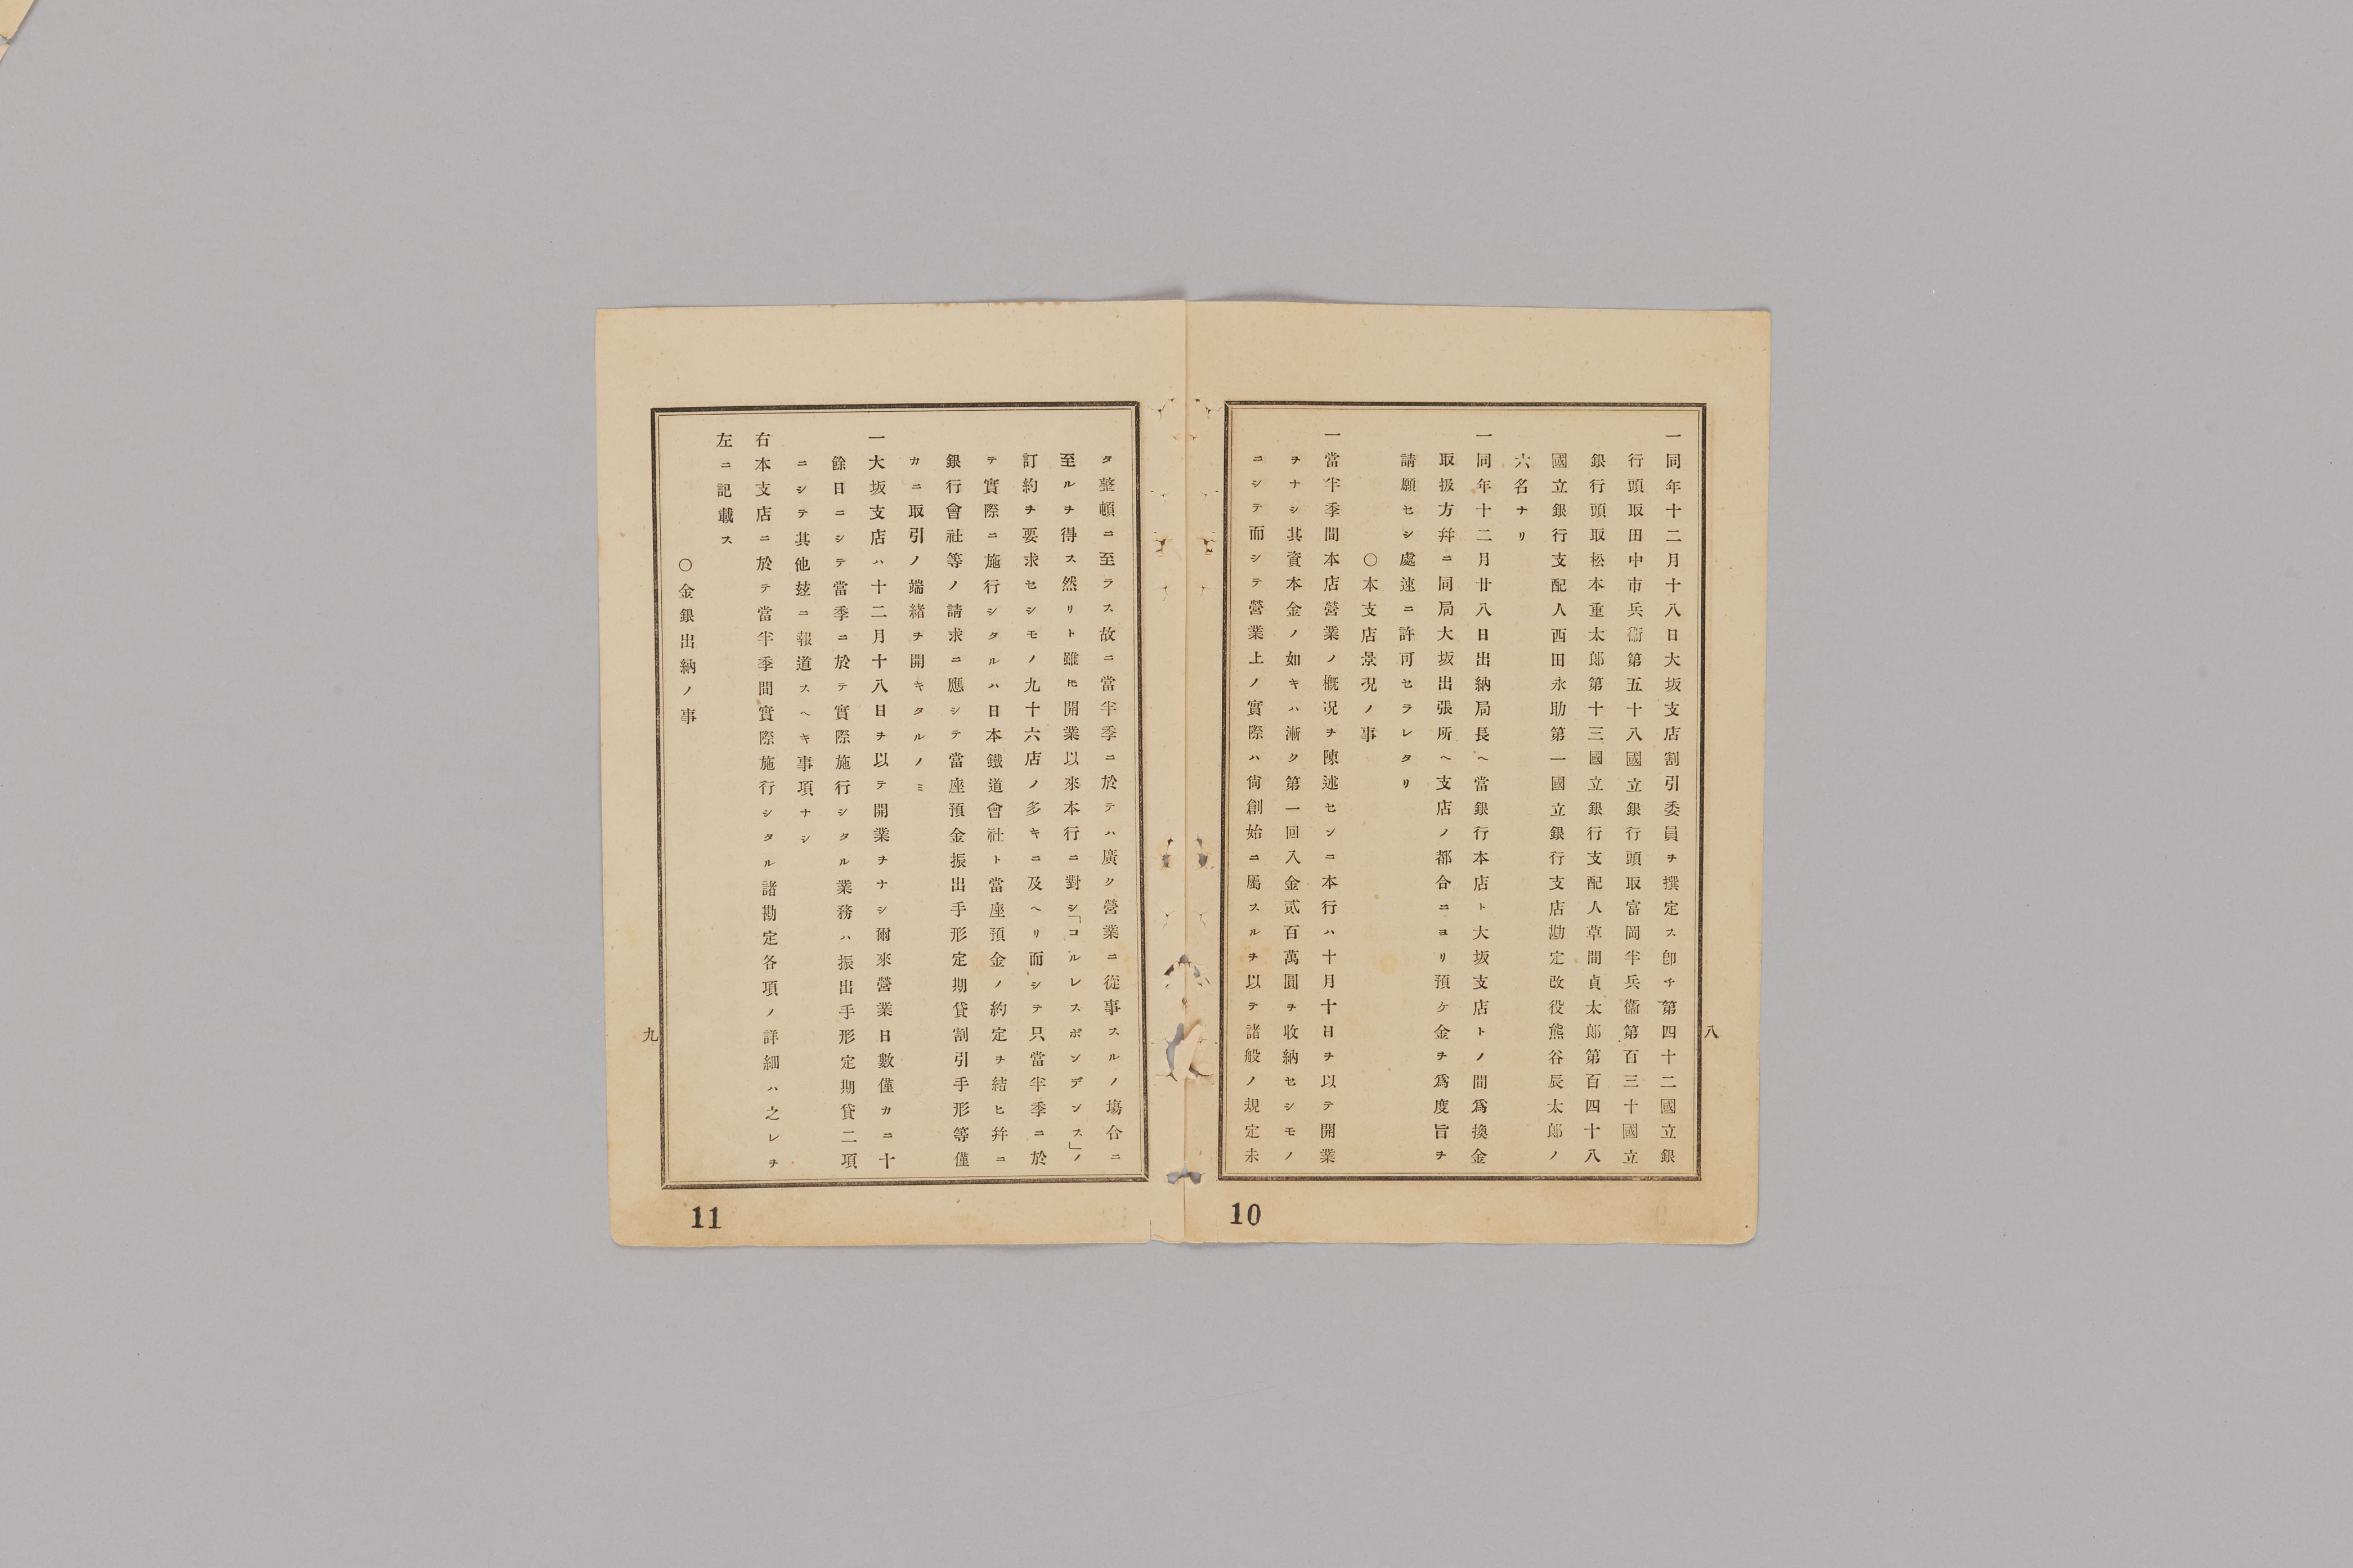 一同年十二月十八日大坂支店割引委員ヲ撰定ス卽チ第四十二國立銀
行頭取田中市兵衞第五十八國立銀行頭取富岡半兵衞第百三十國立
銀行頭取松本重太郎第十三國立銀行支配人草間貞太郎第百四十八
國立銀行支配人西田永助第一國立銀行支店勘定改役熊谷辰太郎ノ
六名ナリ
一同年十二月廿八日出納局長ヘ當銀行本店ト大坂支店トノ間爲換金
取扱方幷ニ同局大坂出張所ヘ支店ノ都合ニヨリ預ケ金ヲ爲度旨ヲ
請願セシ處速ニ許可セラレタリ
○本支店景況ノ事
一當半季間本店營業ノ槪況ヲ陳述センニ本行ハ十月十日ヲ以テ開業
ヲナシ其資本金ノ如キハ漸ク第一回入金貳百萬圓ヲ收納セシモノ
ニシテ而シテ營業上ノ實際ハ尙創始ニ屬スルヲ以テ諸般ノ規定未
八
10
タ整頓ニ至ラス故ニ當半季ニ於テハ廣ク營業ニ從事スルノ塲合ニ
至ルヲ得ス然リト雖𪜈開業以來本行ニ對シ「コルレスポンデンス」ノ
訂約ヲ要求セシモノ九十六店ノ多キニ及ヘリ而シテ只當半季ニ於
テ實際ニ施行シタルハ日本鐵道會社ト當座預金ノ約定ヲ結ヒ幷ニ
銀行會社等ノ請求ニ應シテ當座預金振出手形定期貸割引手形等僅
カニ取引ノ端緖ヲ開キタルノミ
一大坂支店ハ十二月十八日ヲ以テ開業ヲナシ爾來營業日數僅カニ十
餘日ニシテ當季ニ於テ實際施行シタル業務ハ振出手形定期貸二項
ニシテ其他玆ニ報道スヘキ事項ナシ
右本支店ニ於テ當半季間實際施行シタル諸勘定各項ノ詳細ハ之レヲ
左ニ記載ス
○金銀出納ノ事
九
11